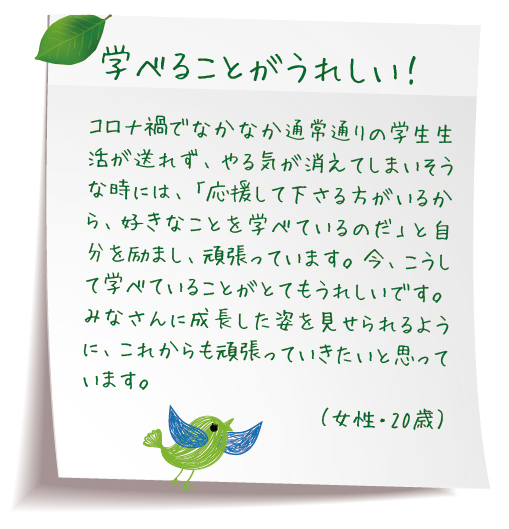 学べることがうれしい！
コロナ禍でなかなか通常通りの学生生
活が送れず、やる気が消えてしまいそう
な時には、「応援して下さる方がいるか
ら、好きなことを学べているのだ」と自
分を励まし、頑張っています。今、こうし
て学べていることがとてもうれしいです。
みなさんに成長した姿を見せられるよう
に、これからも頑張っていきたいと思って
います。
（女性・20歳）